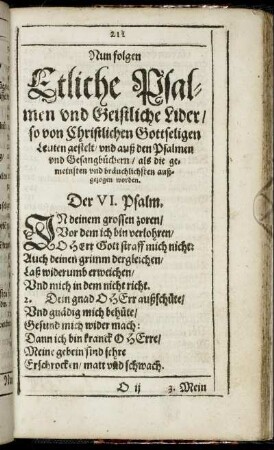 211
Nun folgen
Etliche Psal-
men vnd Geistliche Lider/
so von Christlichen Gottseligen
Leuten gestelt/ vnd auß den Psalmen
vnd Gesangbüchern/ als die ge-
meinsten vnd bräuchlichsten auß-
gezogen worden.
Der VI. Psalm.
IN deinem grossen zoren/
Vor dem ich bin verlohren/
O HErr Gott straff mich nicht:
Auch deinen grimm dergleichen/
Laß widerumb erweichen/
Vnd mich in dem nicht richt.
2. Dein gnad O HErr außschüte/
Vnd gnädig mich behüte/
Gesund mich wider mach:
Dann ich bin kranck O HErre/
Meine gebein sind sehre
Erschrocken/ matt vnd schwach.
O ij 3. Mein